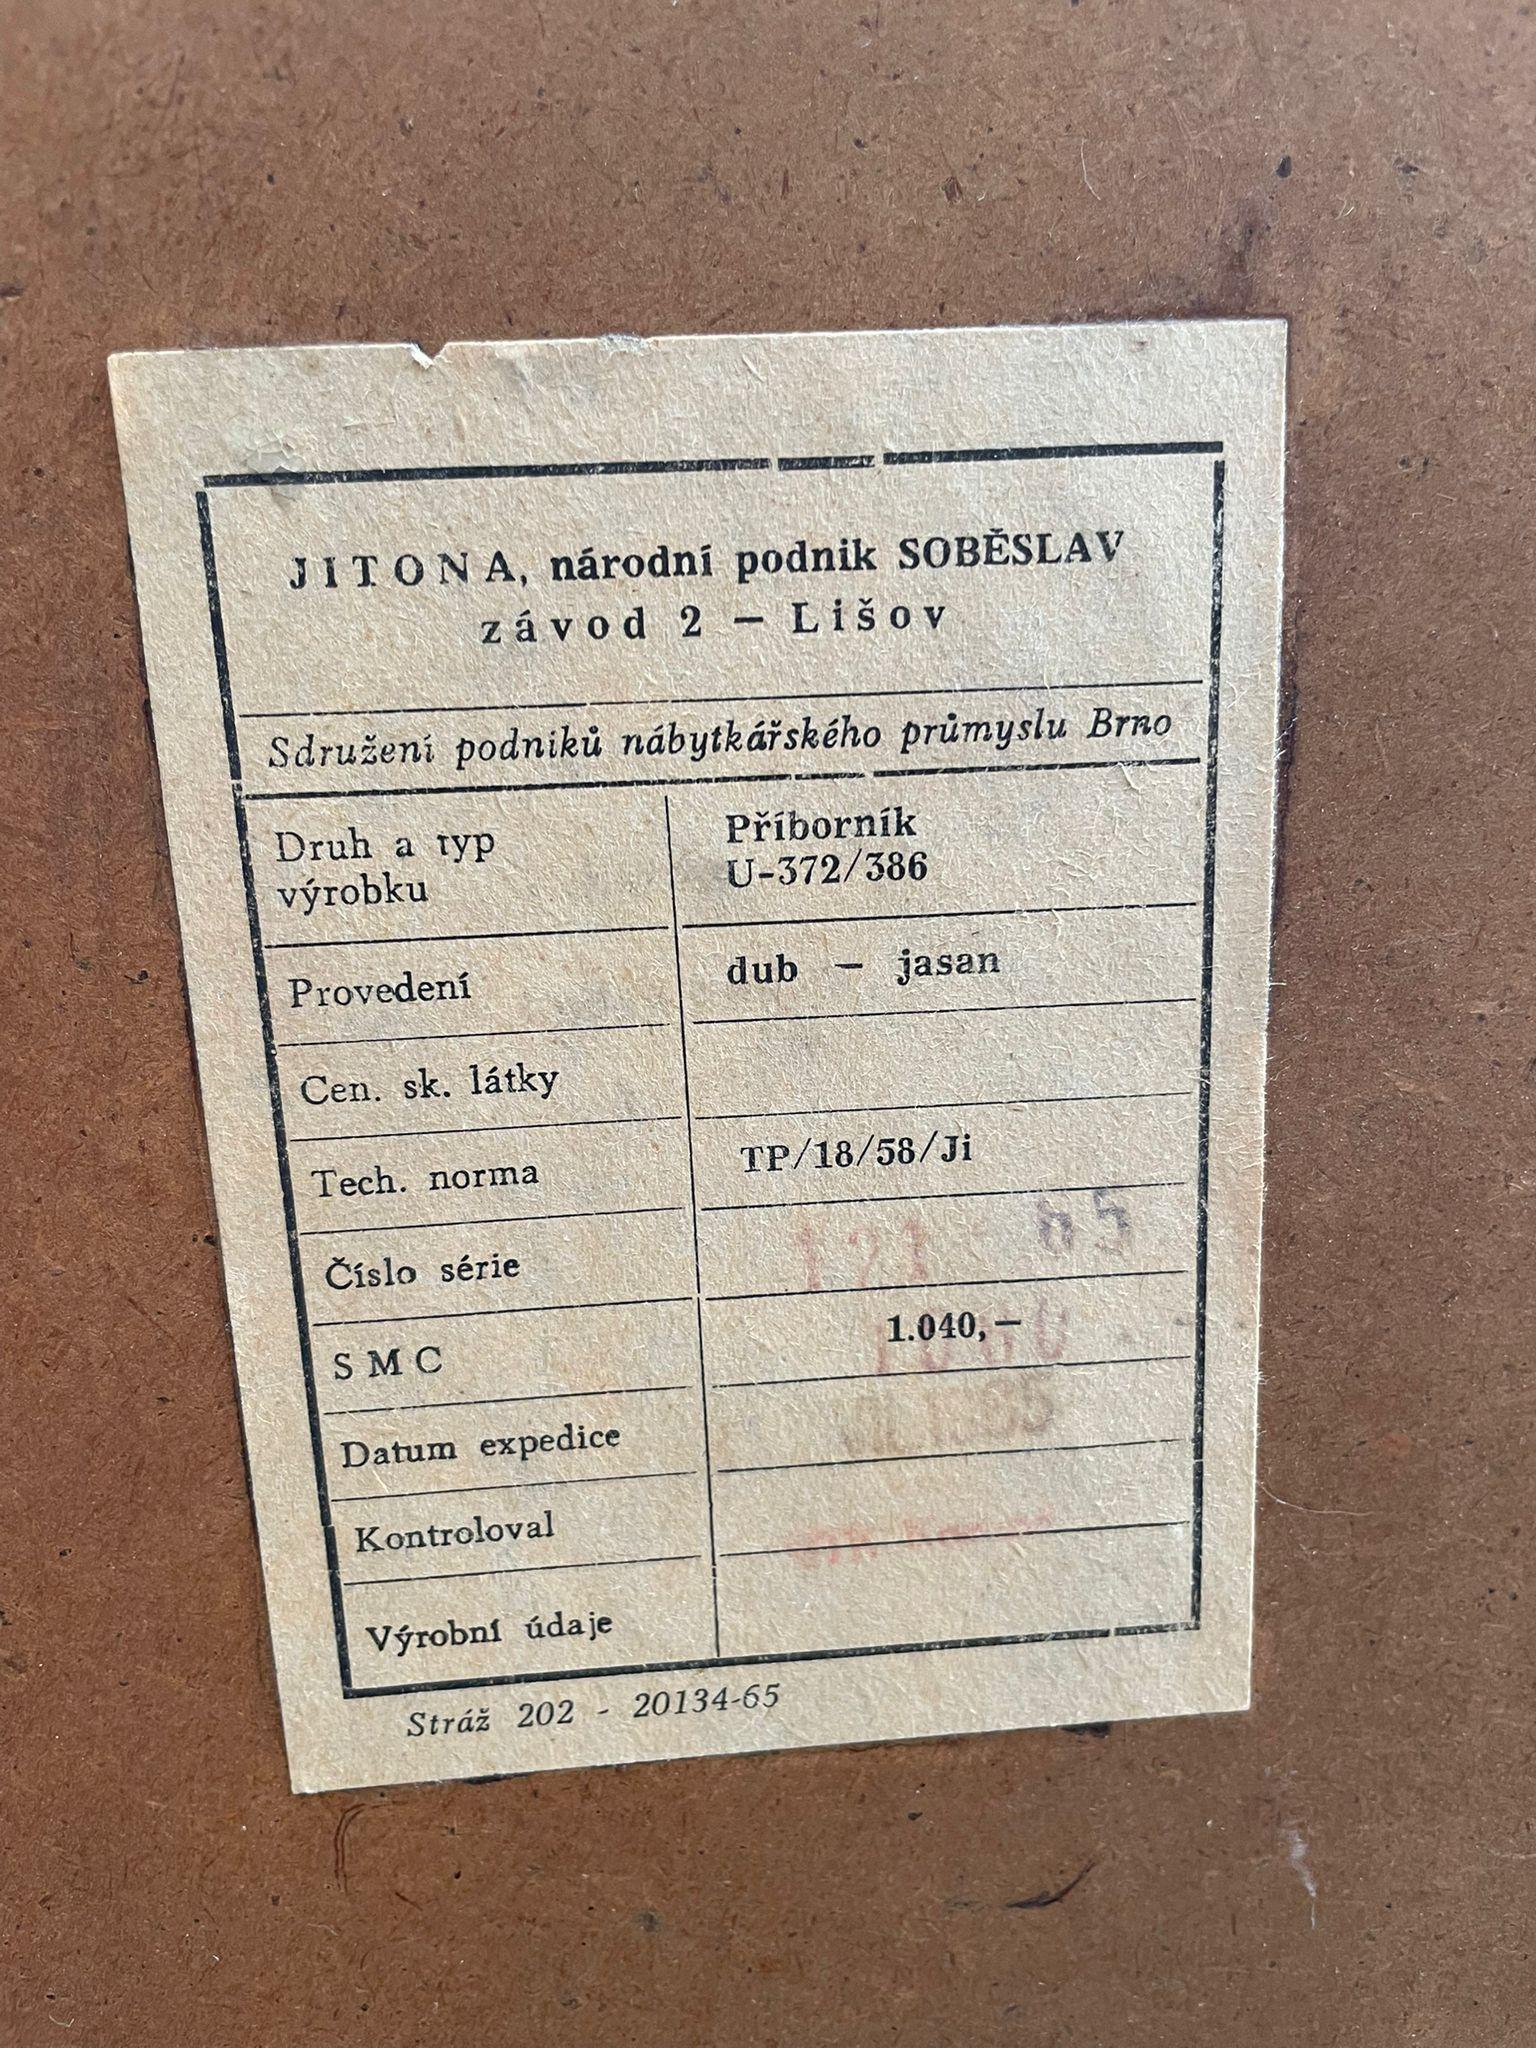 JITONA, národní podnik SOBĚSLAV
závod 2 — Lišov
Sdružení podniků nábytkářského průmyslu Brno
Druh a typ výrobku
Příborník
U-372/386
Provedení
dub — jasan
Cen. sk. látky
Tech. norma
TP/18/58/Ji
Číslo série
S M C
1.040,—
Datum expedice
Kontroloval
Výrobní údaje
Stráž 202 - 20134-65